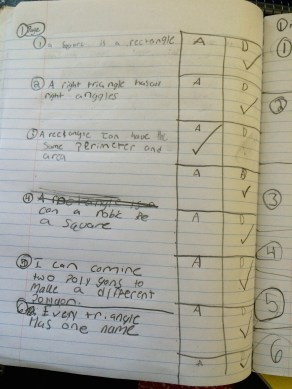 ① is a rectangle A D
② A right triangle A D
right anggles
③ A rectangle can have the A D
same perimeter and
area
A D
④ can a robt be
a square
⑤ I can comine A D
two polygons to
make a different
polygon.
⑥ Every triangle A D
Has one name
A
①
②
③
④
⑤
⑥